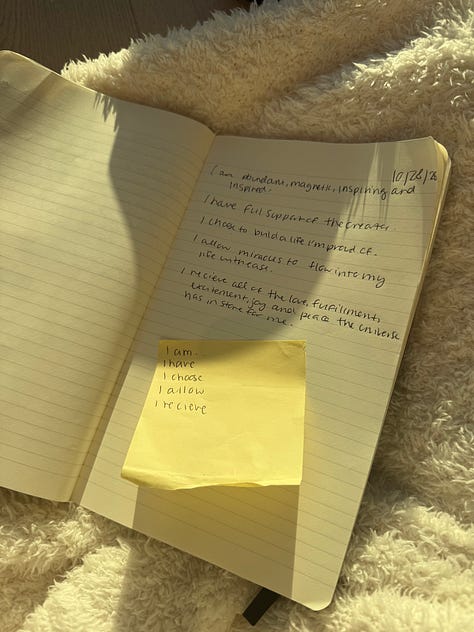 10/28/25
I am abundant, magnetic, inspiring and
inspired.
I have full support of the creator.
I choose to build a life I'm proud of.
I allow miracles to flow into my
life with ease.
I recieve all of the love, fulfillment,
excitement, joy and peace the universe
has in store for me.
I am.
I have
I choose
I allow
I recieve